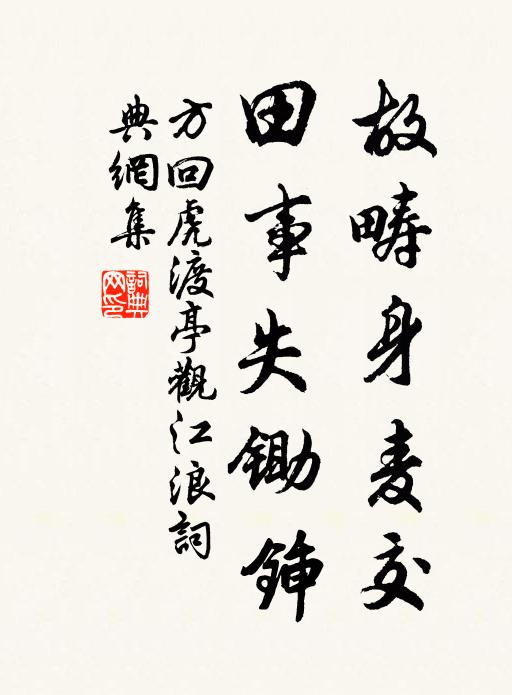 故疇身麦交
田事失鋤
方回虎渡亭觀江浪詞
典網集
詞典網印